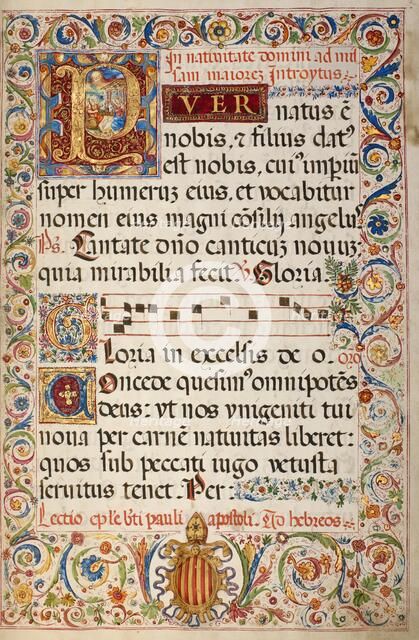 In natiuitate domini ad mis
sam maiorez Introytus
PVER
natus ē
nobis, ⁊ filius dat⁹
est nobis, cui⁹ impiū
super humeruz eius, et vocabitur
nomen eius magni cōsilij angelu⁹
Ps. Cantate dn̄o canticuz nouuz
quia mirabilia fecit. ℣ Gloria
Gloria in excelsis de o. oro
Concede quesum⁹ omnipotēs
deus: vt nos vnigeniti tui
noua per carnē natiuitas liberet:
quos sub peccati iugo vetusta
seruitus tenet. Per:
Lectio ep̄le bt̄i pauli apostoli. Ad hebreos
Heritage